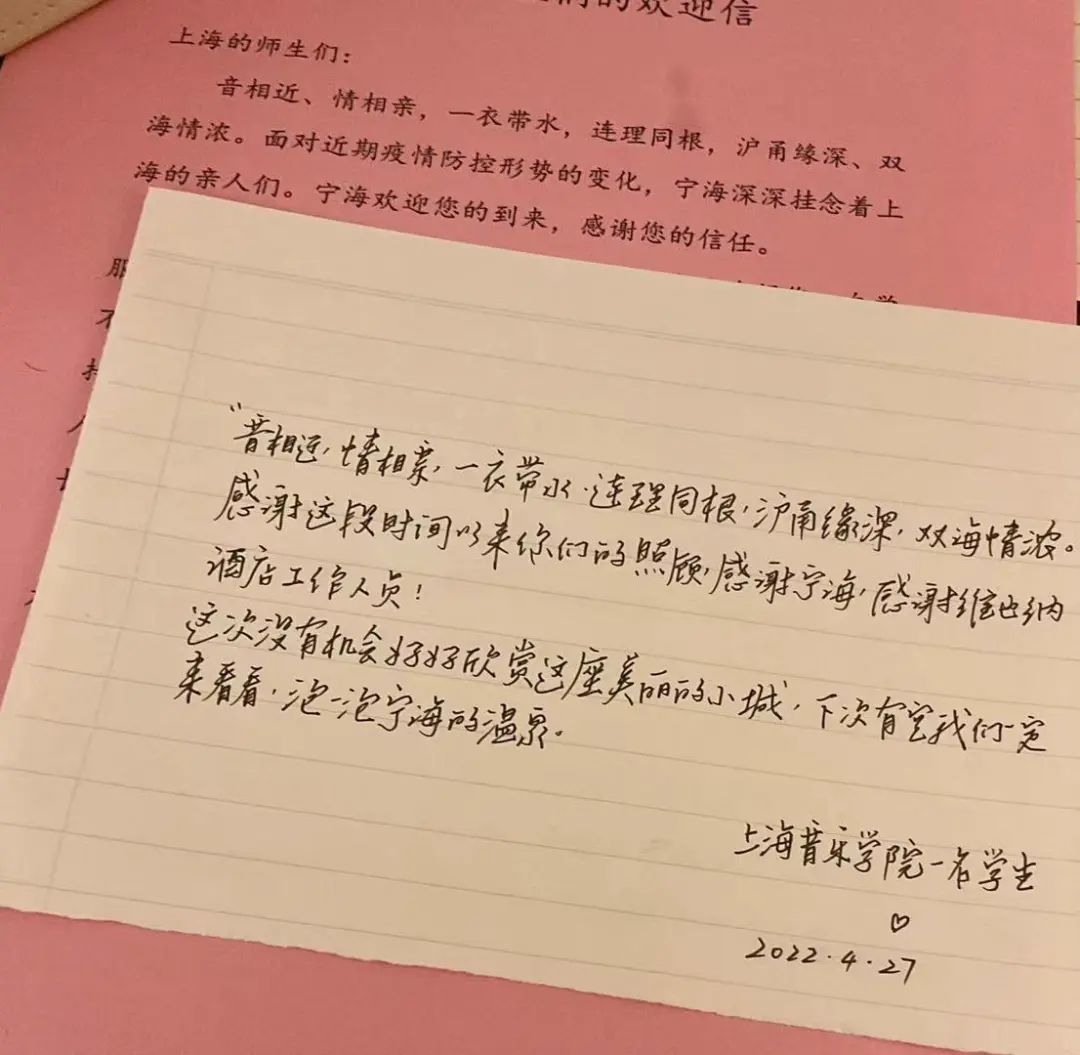 们的欢迎信
上海的师生们：
音相近、情相亲，一衣带水，连理同根，沪甬缘深、双
海情浓。面对近期疫情防控形势的变化，宁海深深挂念着上
海的亲人们。宁海欢迎您的到来，感谢您的信任。
“音相近，情相亲，一衣带水，连理同根，沪甬缘深，双海情浓。
感谢这段时间以来你们的照顾，感谢宁海，感谢维也纳
酒店工作人员！
这次没有机会好好欣赏这座美丽的小城，下次有空我们一定
来看看，泡一泡宁海的温泉.
上海音乐学院一名学生
♡
2022.4.27